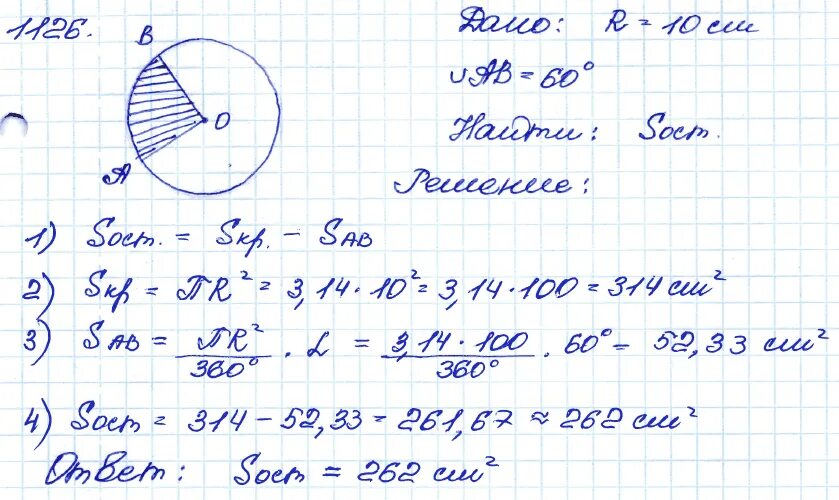 1126.
B
O
A
Дано: R = 10 см
∪AB = 60°
Найти: Sост.
Решение:
1) Sост. = Sкр. - SAB
2) Sкр = ПR² = 3,14·10² = 3,14·100 = 314 см²
3) SAB = ПR²/360° · L = 3,14·100/360° · 60° = 52,33 см²
4) Sост = 314 - 52,33 = 261,67 ≈ 262 см²
Ответ: Sост = 262 см²